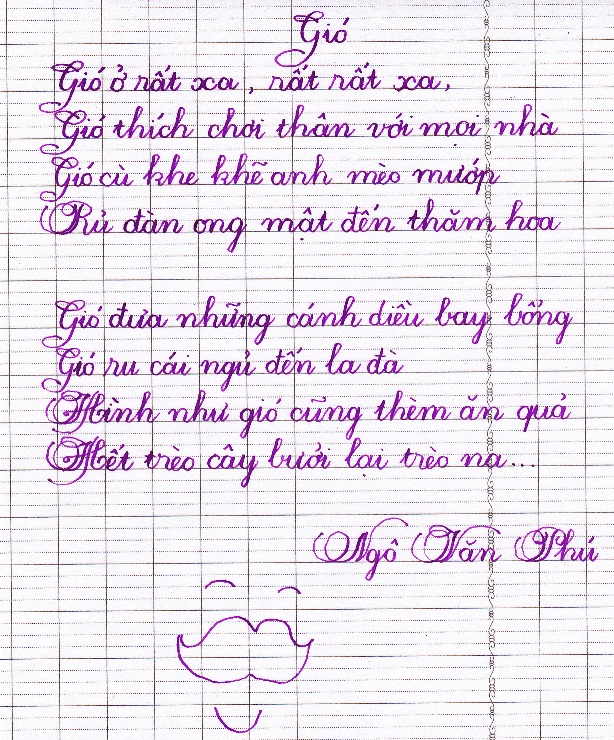 Gió
Gió ở rất xa, rất rất xa,
Gió thích chơi thân với mọi nhà
Gió cù khe khẽ anh mèo mướp
Rủ đàn ong mật đến thăm hoa
Gió đưa những cánh diều bay bổng
Gió ru cái ngủ đến la đà
Hình như gió cũng thèm ăn quả
Hết trèo cây bưởi lại trèo na...
Ngô Văn Phú